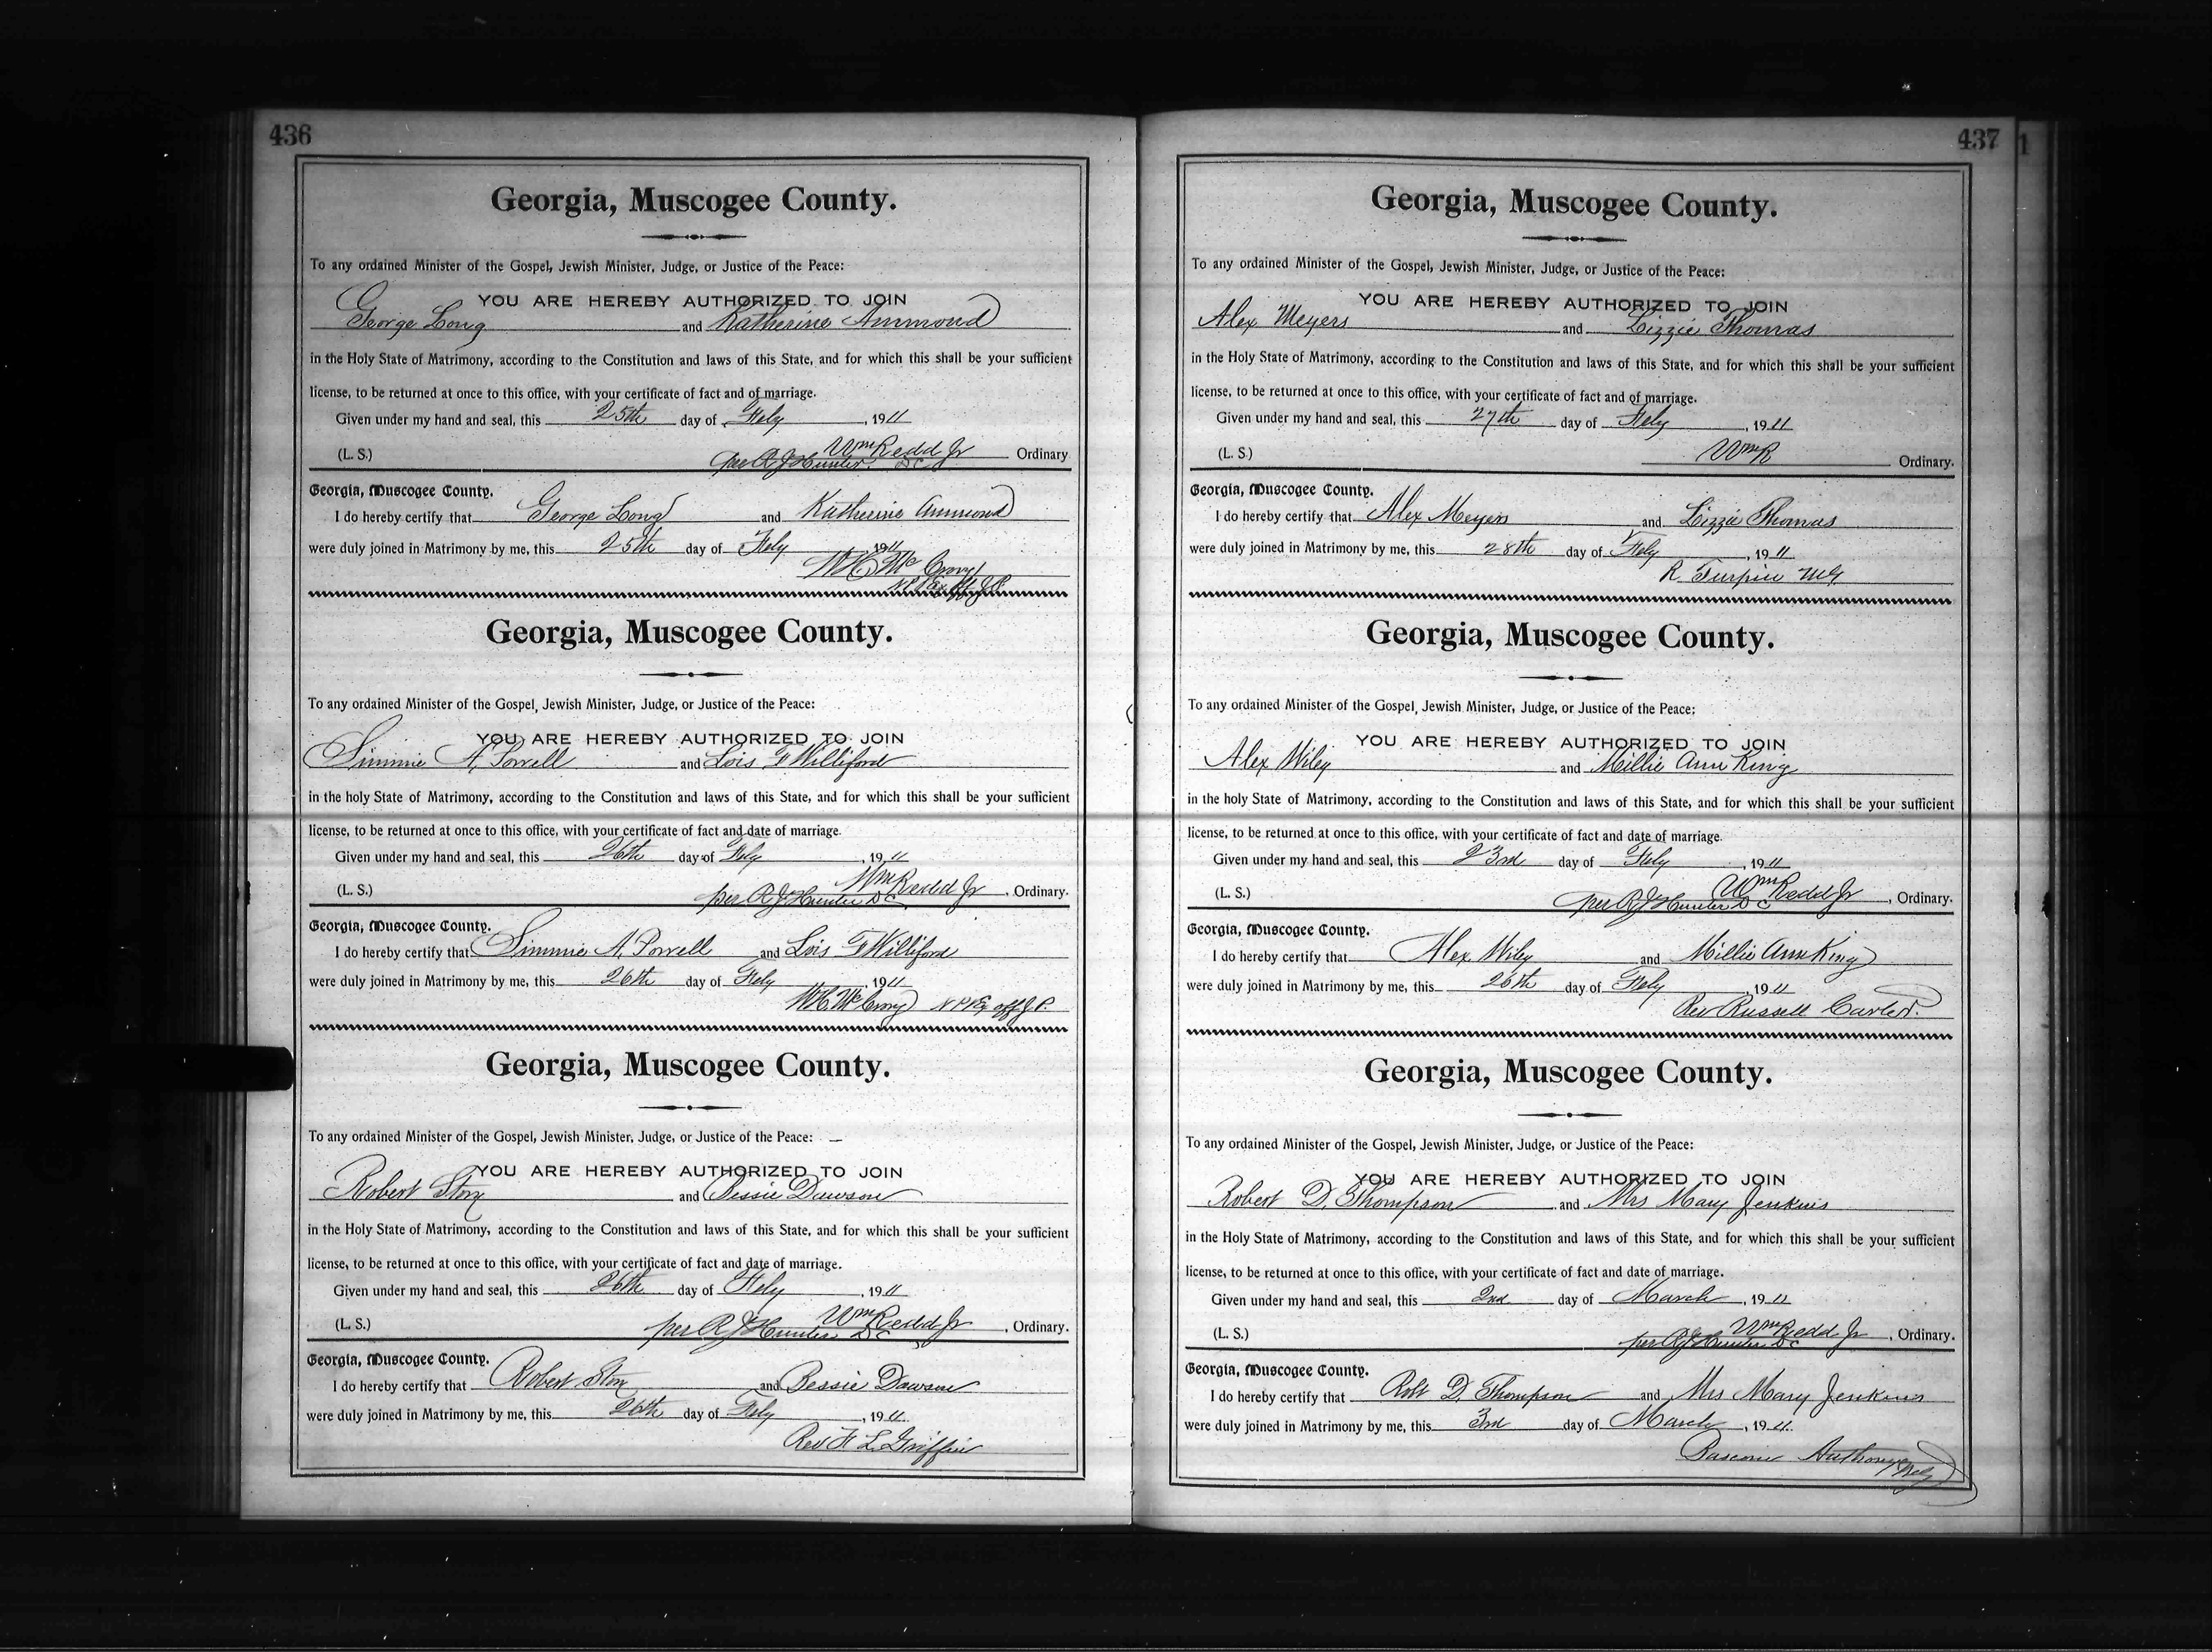 436
Georgia, Muscogee County.
To any ordained Minister of the Gospel, Jewish Minister, Judge, or Justice of the Peace:
YOU ARE HEREBY AUTHORIZED TO JOIN
George Long and Katherine Ammond
in the Holy State of Matrimony, according to the Constitution and laws of this State, and for which this shall be your sufficient
license, to be returned at once to this office, with your certificate of fact and of marriage.
Given under my hand and seal, this 25th day of Feby, 1911
(L. S.) Wm Redd Jr Ordinary
per R J Hunter D C
Georgia, Muscogee County.
I do hereby certify that George Long and Katherine Ammond
were duly joined in Matrimony by me, this 25th day of Feby 1911
W C McCrory
N P & Ex Off J P.
Georgia, Muscogee County.
To any ordained Minister of the Gospel, Jewish Minister, Judge, or Justice of the Peace:
YOU ARE HEREBY AUTHORIZED TO JOIN
Simmie A. Powell and Lois F Williford
in the holy State of Matrimony, according to the Constitution and laws of this State, and for which this shall be your sufficient
license, to be returned at once to this office, with your certificate of fact and date of marriage.
Given under my hand and seal, this 26th day of Feby, 1911
(L. S.) Wm Redd Jr, Ordinary.
per R J Hunter D C
Georgia, Muscogee County.
I do hereby certify that Simmie A. Powell and Lois F Williford
were duly joined in Matrimony by me, this 26th day of Feby, 1911
W C McCrory N P & Ex off J P.
Georgia, Muscogee County.
To any ordained Minister of the Gospel, Jewish Minister, Judge, or Justice of the Peace:
YOU ARE HEREBY AUTHORIZED TO JOIN
Robert and Bessie Dawson
in the Holy State of Matrimony, according to the Constitution and laws of this State, and for which this shall be your sufficient
license, to be returned at once to this office, with your certificate of fact and date of marriage.
Given under my hand and seal, this 26th day of Feby, 1911
(L. S.) Wm Redd Jr, Ordinary.
per R J Hunter D C
Georgia, Muscogee County.
I do hereby certify that Robert and Bessie Dawson
were duly joined in Matrimony by me, this 26th day of Feby, 1911.
Rev F L Griffin
437
Georgia, Muscogee County.
To any ordained Minister of the Gospel, Jewish Minister, Judge, or Justice of the Peace:
YOU ARE HEREBY AUTHORIZED TO JOIN
Alex Meyers and Lizzie Thomas
in the Holy State of Matrimony, according to the Constitution and laws of this State, and for which this shall be your sufficient
license, to be returned at once to this office, with your certificate of fact and of marriage.
Given under my hand and seal, this 27th day of Feby, 1911
(L. S.) Wm R Ordinary.
Georgia, Muscogee County.
I do hereby certify that Alex Meyers and Lizzie Thomas
were duly joined in Matrimony by me, this 28th day of Feby, 1911
R Turpin MG
Georgia, Muscogee County.
To any ordained Minister of the Gospel, Jewish Minister, Judge, or Justice of the Peace:
YOU ARE HEREBY AUTHORIZED TO JOIN
Alex Wiley and Millie Ann King
in the holy State of Matrimony, according to the Constitution and laws of this State, and for which this shall be your sufficient
license, to be returned at once to this office, with your certificate of fact and date of marriage.
Given under my hand and seal, this 23rd day of Feby, 1911
(L. S.) Wm Redd Jr, Ordinary.
per R J Hunter D C
Georgia, Muscogee County.
I do hereby certify that Alex Wiley and Millie Ann King
were duly joined in Matrimony by me, this 26th day of Feby, 1911
Rev Russell Carter.
Georgia, Muscogee County.
To any ordained Minister of the Gospel, Jewish Minister, Judge, or Justice of the Peace:
YOU ARE HEREBY AUTHORIZED TO JOIN
Robert D. Thompson and Mrs Mary Jenkins
in the Holy State of Matrimony, according to the Constitution and laws of this State, and for which this shall be your sufficient
license, to be returned at once to this office, with your certificate of fact and date of marriage.
Given under my hand and seal, this 2nd day of March, 1911
(L. S.) Wm Redd Jr, Ordinary.
per R J Hunter D C
Georgia, Muscogee County.
I do hereby certify that Robt D. Thompson and Mrs Mary Jenkins
were duly joined in Matrimony by me, this 3rd day of March, 1911.
Bascom Anthony